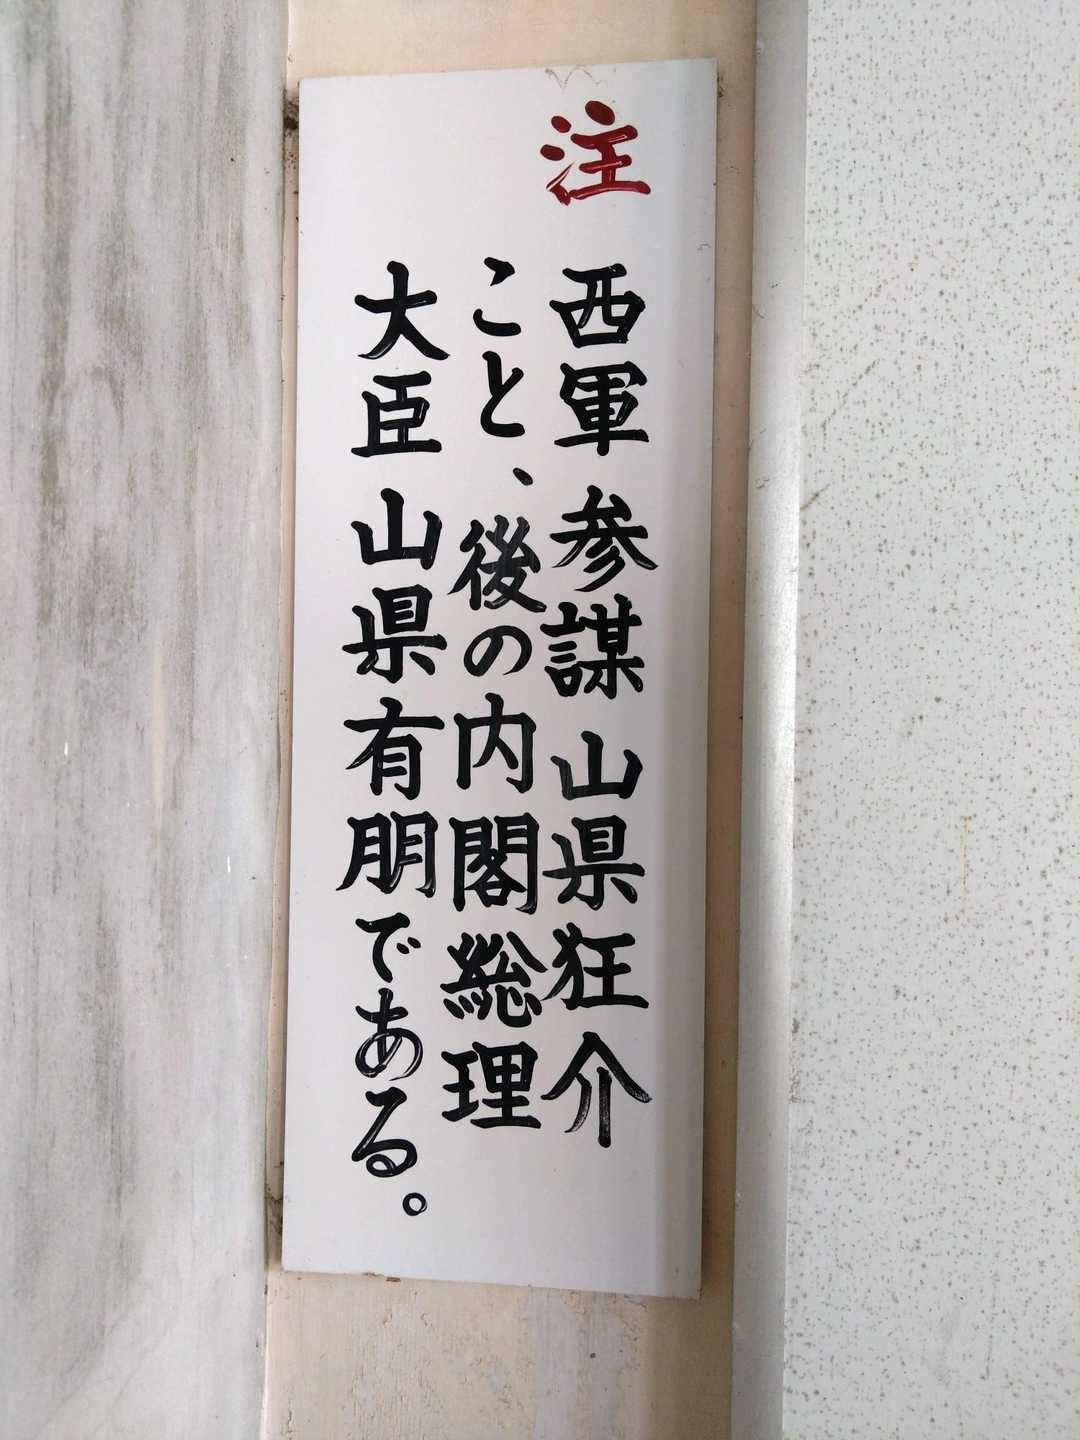 注
西軍参謀山県狂介
こと、後の内閣総理
大臣山県有朋である。